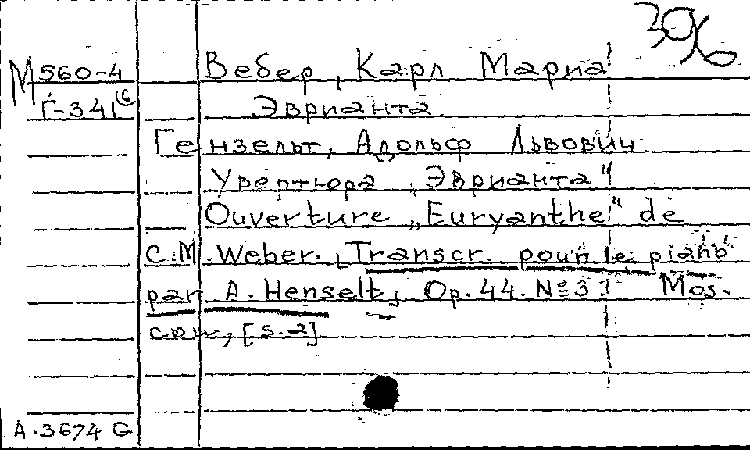 396
М 560-4 Вебер, Карл Мариа
Г-341 Эврианта
Гензельт, Адольф Львович
Увертюра „Эврианта"
Ouverture „Euryanthe" de
C.M. Weber. Transcr. pour le piano
par A. Henselt, Op. 44. №3 Mos.
cou, [s.a]
A.3674 G